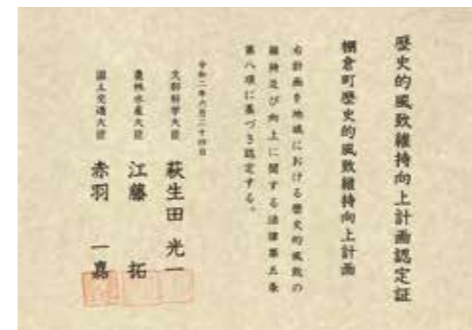 歴史的風致維持向上計画認定証
棚倉町歴史的風致維持向上計画
右計画を地域における歴史的風致の
維持及び向上に関する法律第五条
第八項に基づき認定する。
令和二年六月二十四日
文部科学大臣 萩生田 光一
農林水産大臣 江藤 拓
国土交通大臣 赤羽 一嘉